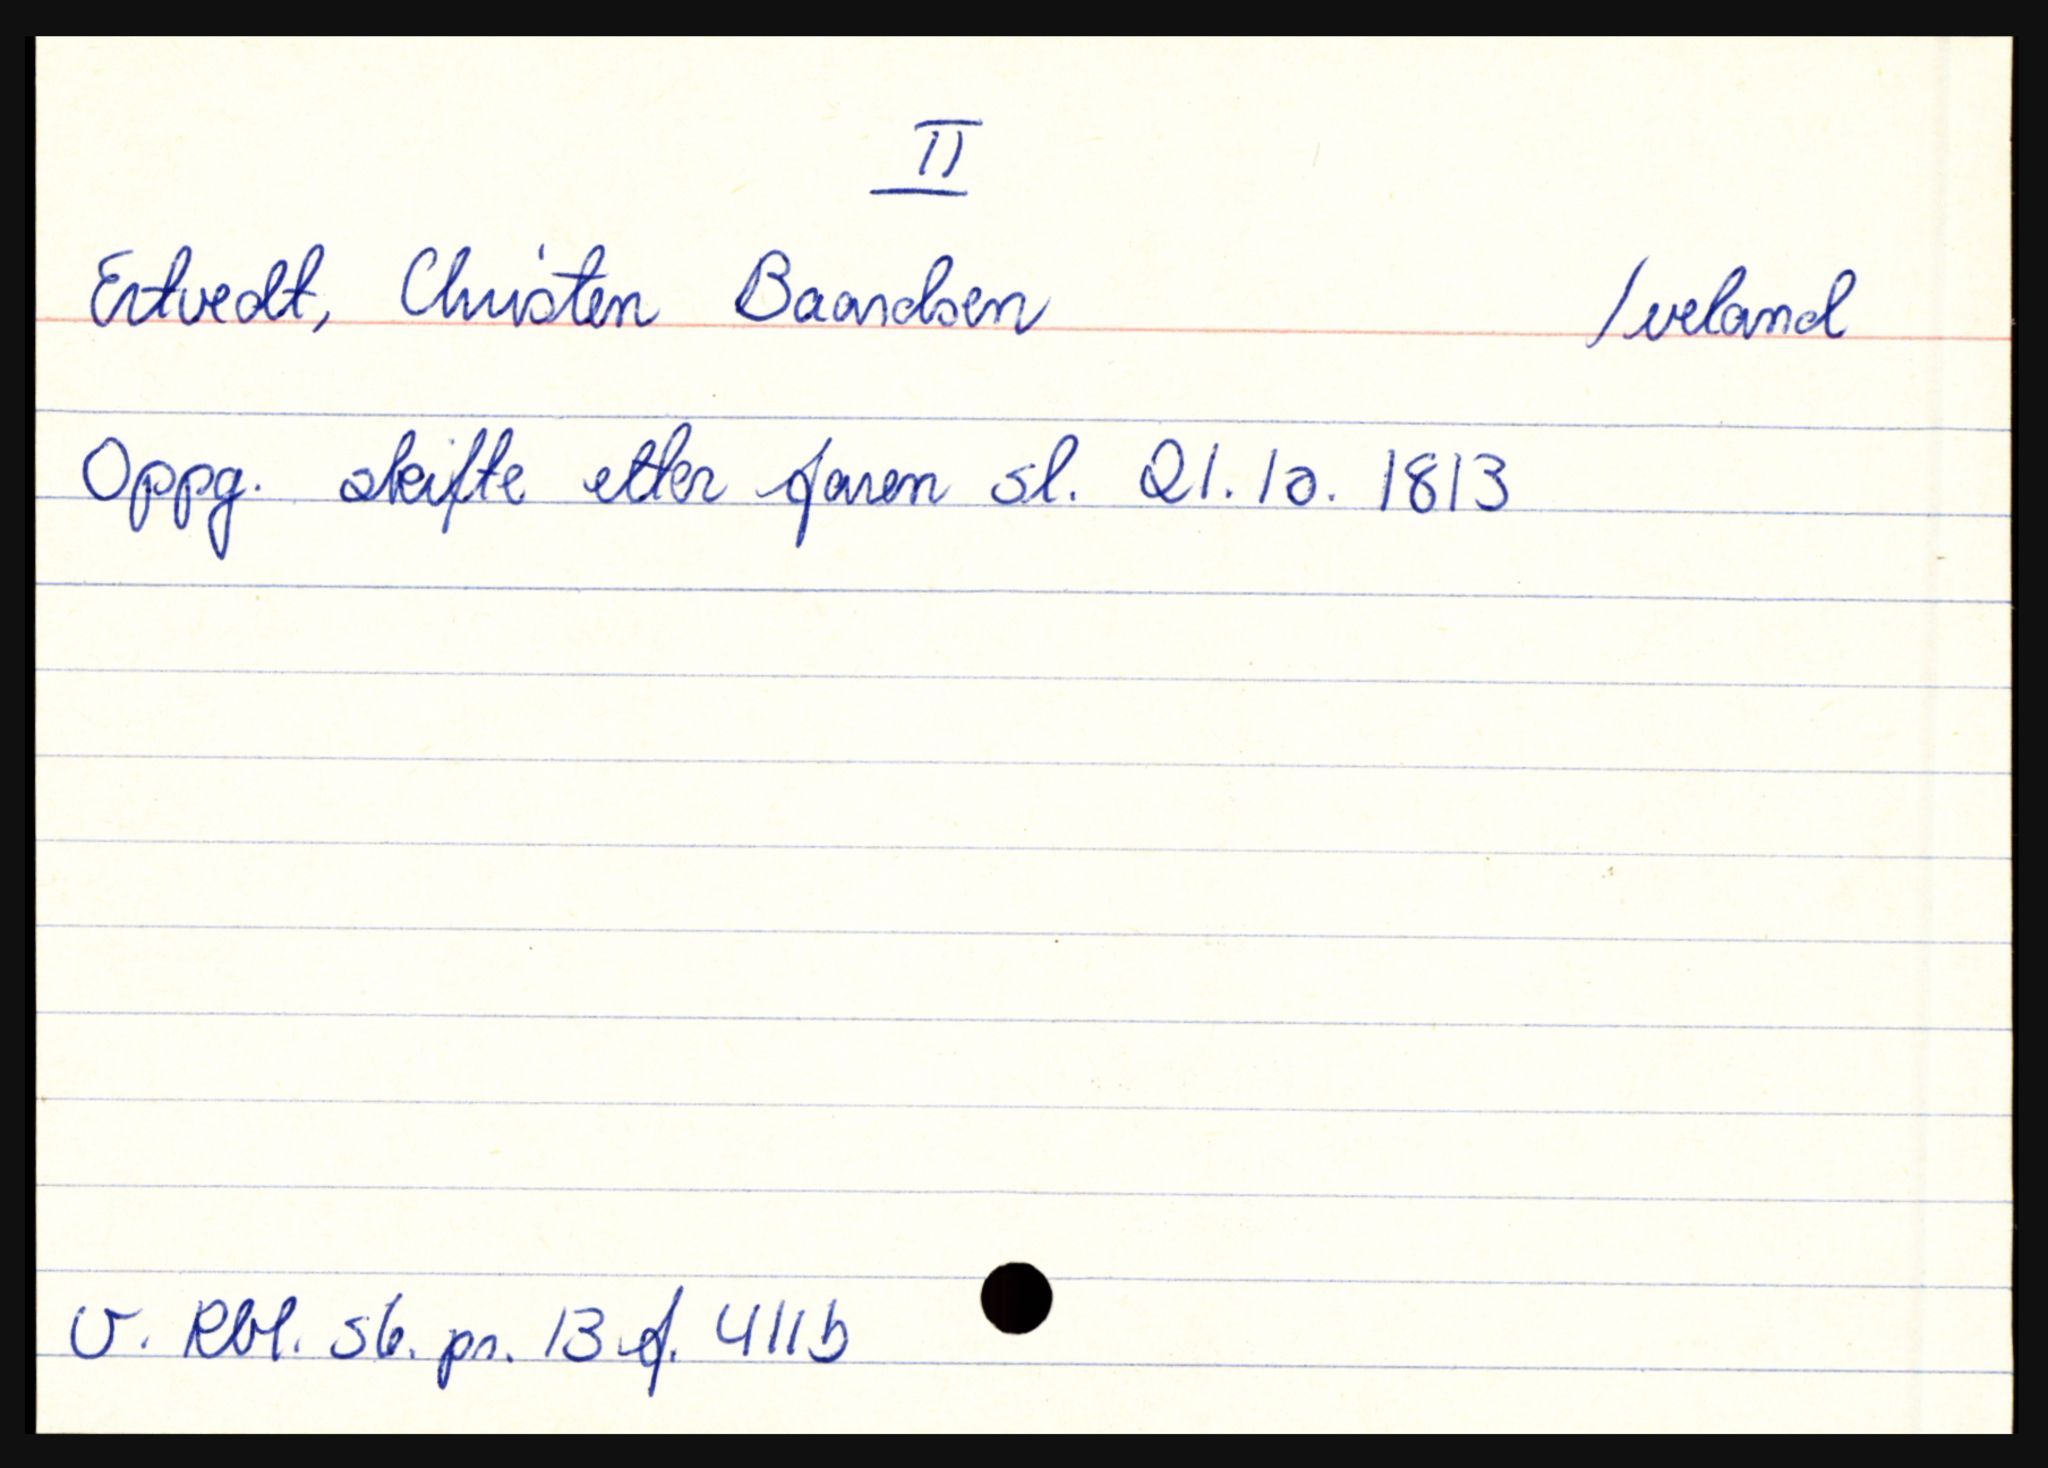 II
Ertvedt, Christen Baardsen Iveland
Oppg. skifte etter faren sl. 21.10.1813
V. Rbl. sb. pr. 13 f. 411b